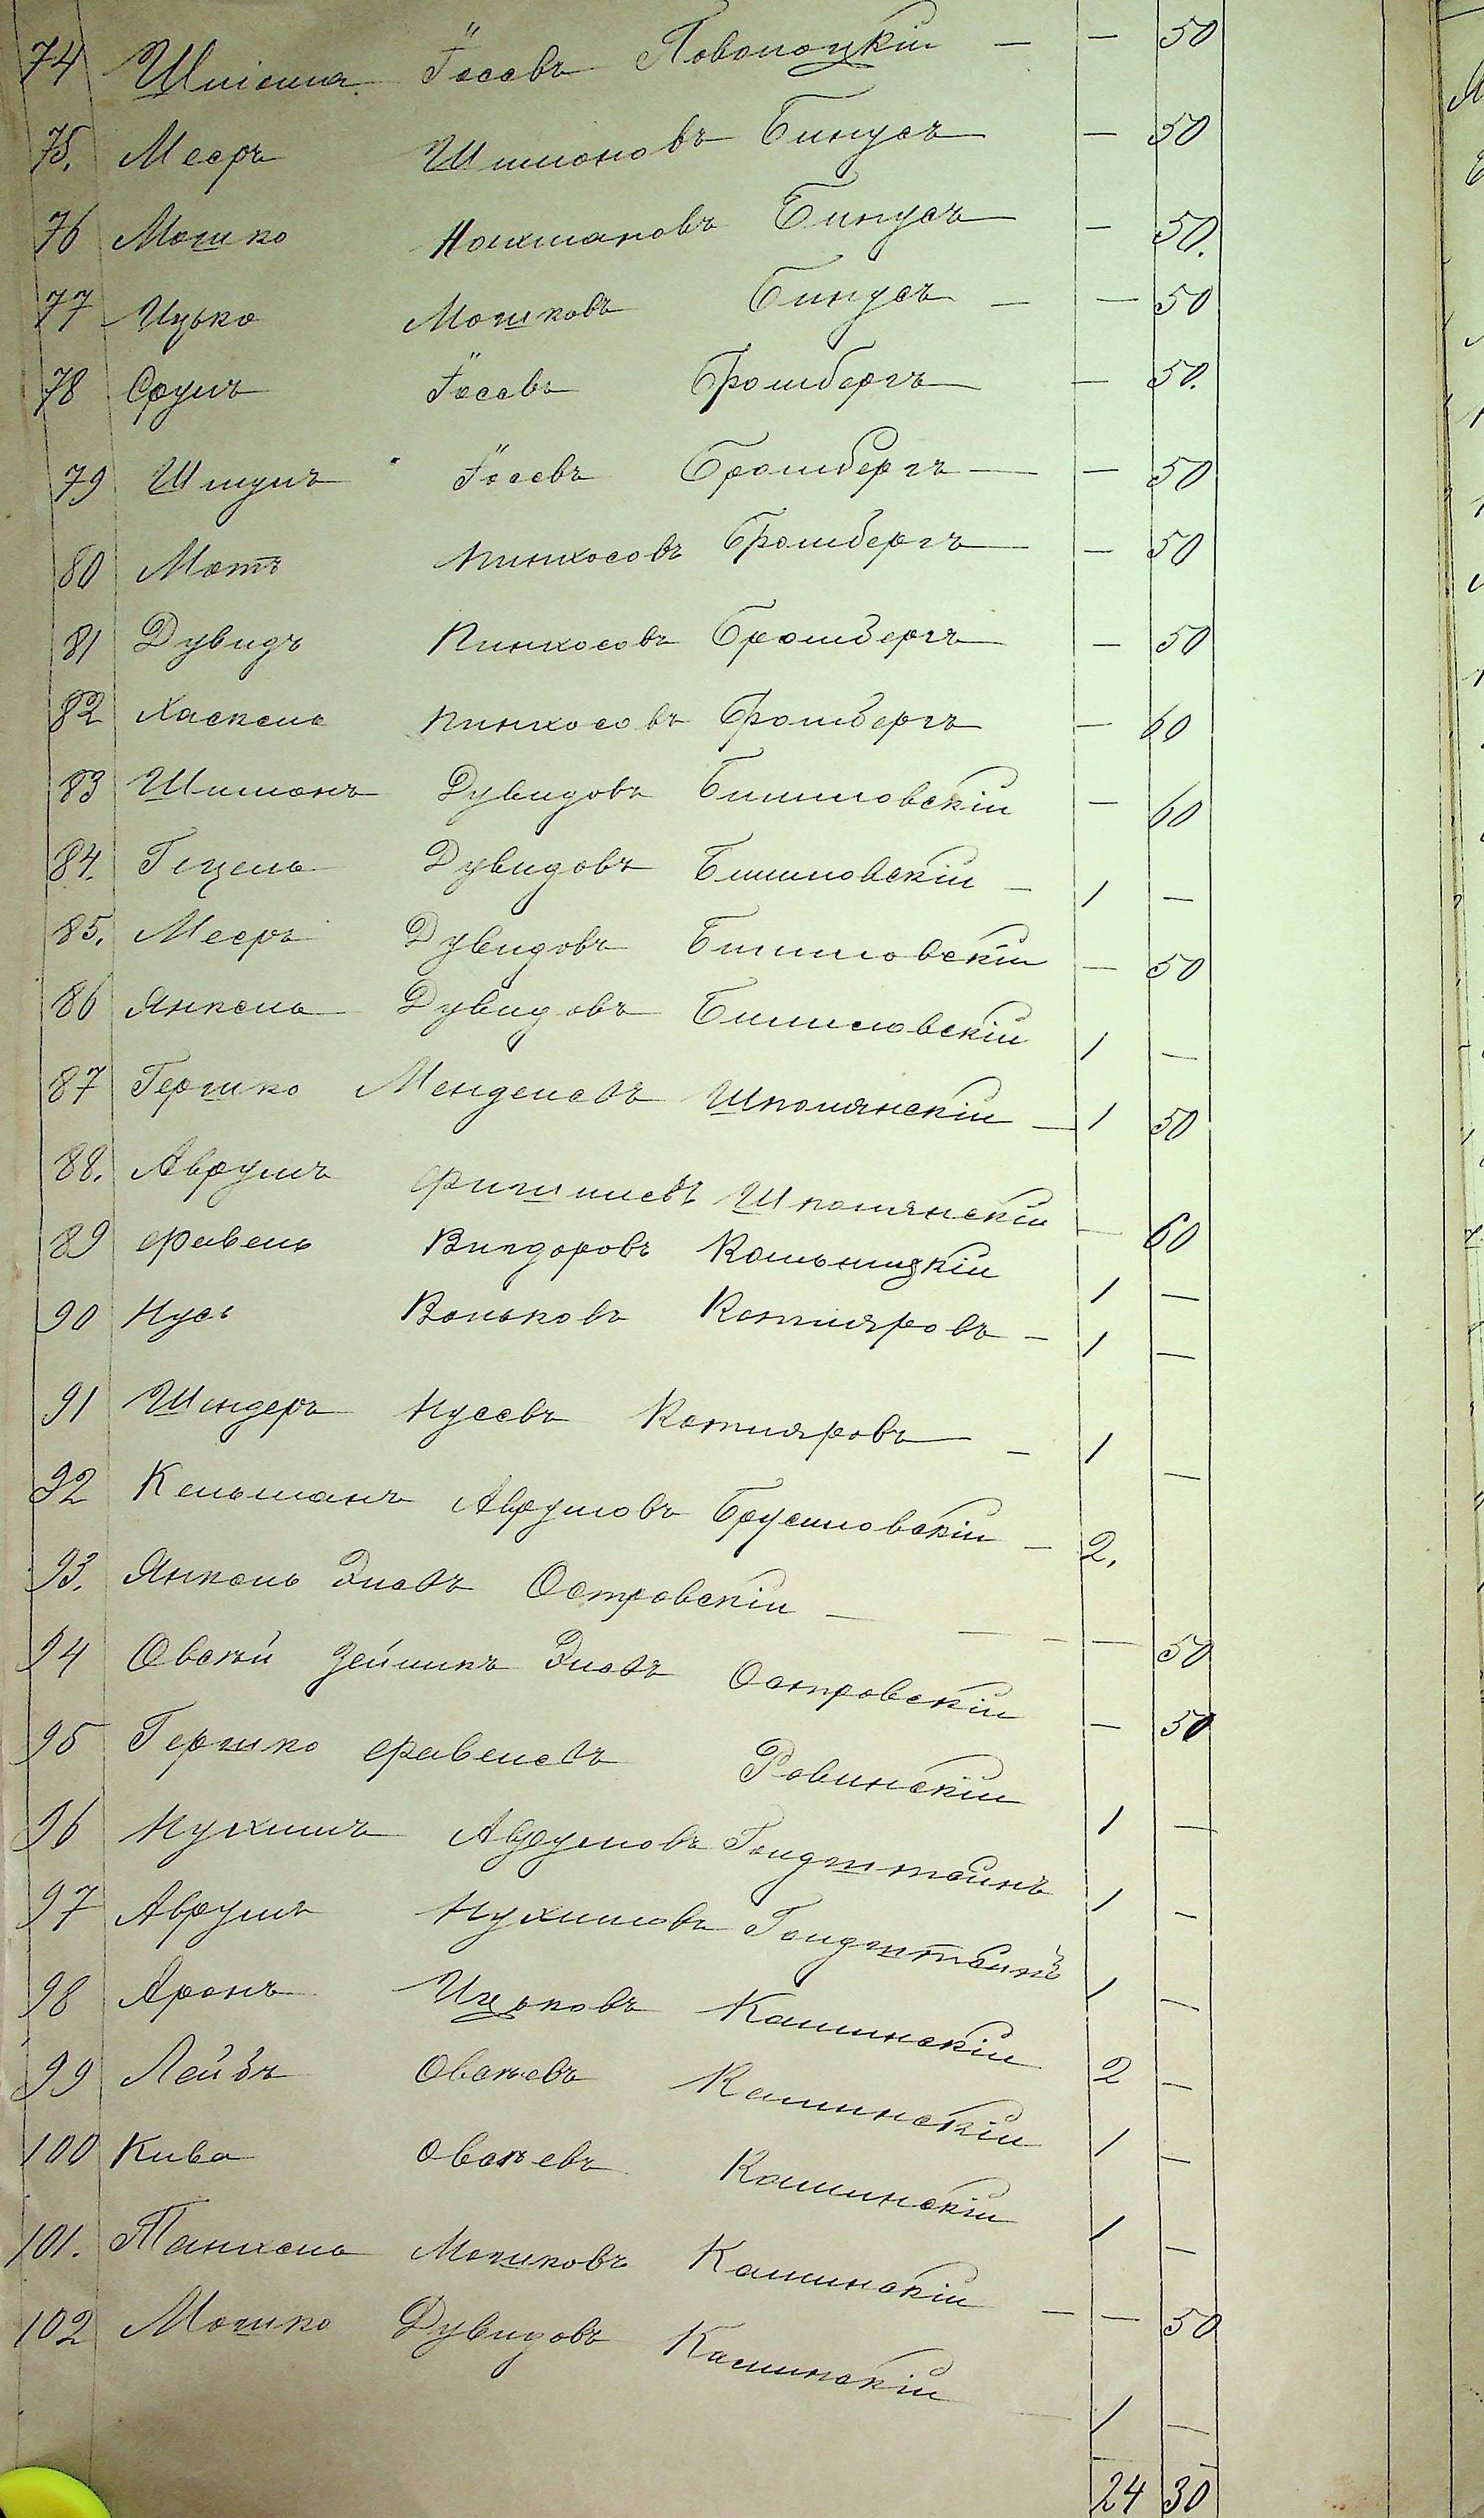 74 Шліома Іосевъ Поволоцкій — — 50
75. Мееръ Шимоновъ Бинусъ — 50
76 Мошко Нахмановъ Бинусъ — 50.
77 Ицько Мошковъ Бинусъ — — 50
78 Сруль Іосевъ Бромбергъ — 50.
79 Шмуль Іосевъ Бромбергъ — — 50
80 Мотъ Пинхосовъ Бромбергъ — 50
81 Дувидъ Пинхосовъ Бромбергъ — 50
82 Хаскель Пинхосовъ Бромбергъ — 60
83 Шимонъ Дувидовъ Билиловскій — 60
84. Гецель Дувидовъ Билиловскій — 1 —
85. Мееръ Дувидовъ Билиловскій — 50
86 Янкель Дувидовъ Билиловскій 1 —
87 Гершко Менделевъ Шполянскій — 1 50
88. Аврумъ Фишилевъ Шполянскій — 60
89 Файвель Вигдоровъ Кальницкій 1 —
90 Нусь Вольковъ Котляровъ — 1 —
91 Шендеръ Нусевъ Котляровъ — 1 —
92 Кельманъ Аврумовъ Брусиловскій — 2.
93. Янкель Элевъ Островскій — — — — 50
94 Овсѣй Зейликъ Элевъ Островскій — 50
95 Гершко Файвелевъ Ровинскій 1 —
96 Нухимъ Аврумовъ Голдштейнъ 1 —
97 Аврумъ Нухимовъ Голдштейнъ 1 —
98 Аронъ Ицьковъ Каминскій 2 —
99 Лейбъ Овсѣевъ Каминскій 1 —
100 Кива Овсѣевъ Каминскій 1 —
101. Танхель Мошковъ Каминскій — — 50
102 Мошко Дувидовъ Каминскій — 1 —
24 30